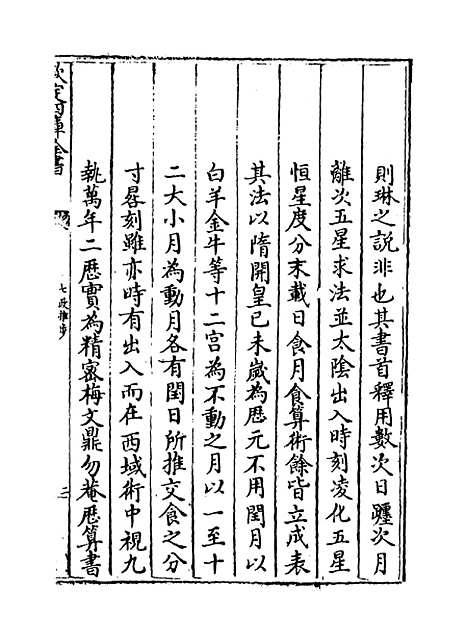 則琳之說非也其書首釋用數次日躔次月
離次五星求法並太陰出入時刻凌犯五星
恒星度分末載日食月食算術餘皆立成表
其法以隋開皇己未歲為厯元不用閏月以
白羊金牛等十二宮為不動之月以一至十
二大小月為動月各有閏日所推交食之分
寸晷刻雖亦時有出入而在西域術中視九
執萬年二厯實為精密梅文鼎勿菴厯算書
欽定四庫全書
七政推步
三